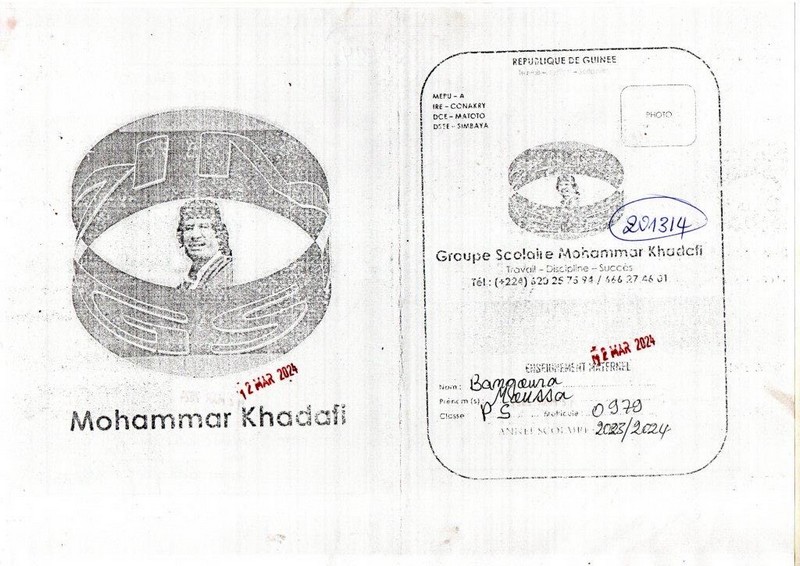 12 MAR 2024
Mohammar Khadafi
REPUBLIQUE DE GUINEE
MEPU – A
IRE – CONAKRY
DCE – MATOTO
DSEE – SIMBAYA
PHOTO
201314
Groupe Scolaire Mohammar Khadafi
Travail – Discipline – Succès
Tél : (+224) 620 25 75 94 / 666 27 46 01
12 MAR 2024
ENSEIGNEMENT MATERNEL
Nom : Bangoura
Prénom (s) : Moussa
Classe : PS Matricule : 0979
ANNEE SCOLAIRE 2023/2024